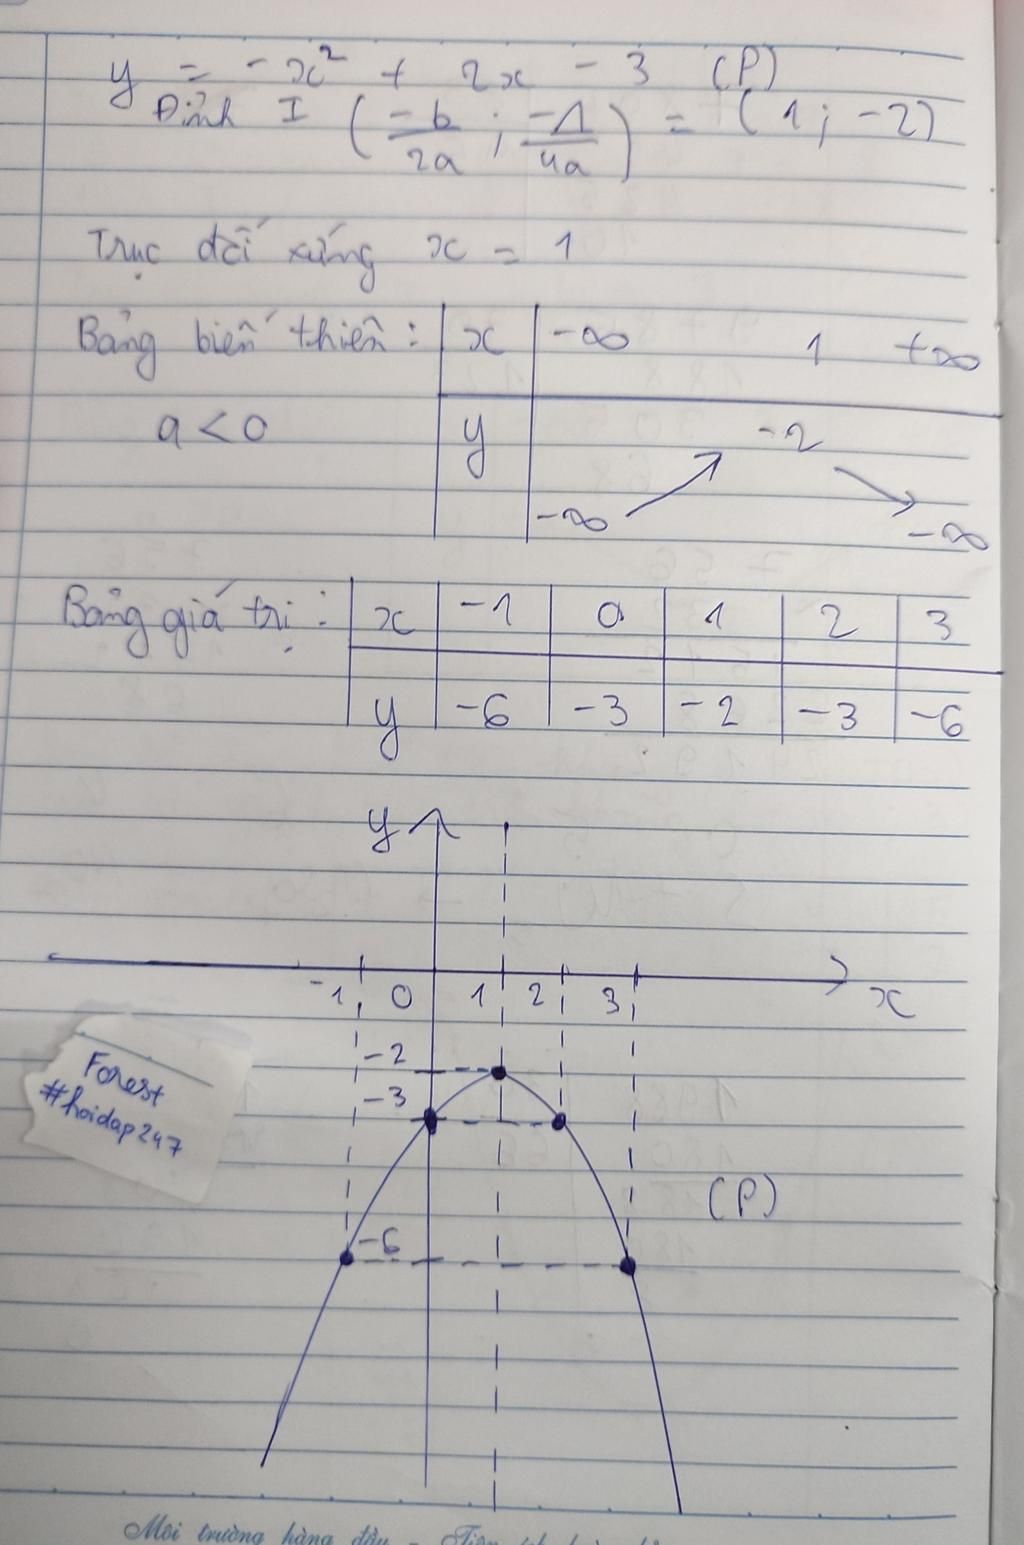 y = -x² + 2x - 3 (P)
Đỉnh I (-b/2a ; -Δ/4a) = (1; -2)
Trục đối xứng x = 1
Bảng biến thiên: x -∞ 1 +∞
a < 0 y -2
-∞ -∞
Bảng giá trị: x -1 0 1 2 3
y -6 -3 -2 -3 -6
y
-1 0 1 2 3 x
-2
-3
Forest
#hoidap247
(P)
-6
Môi trường hàng đầu -